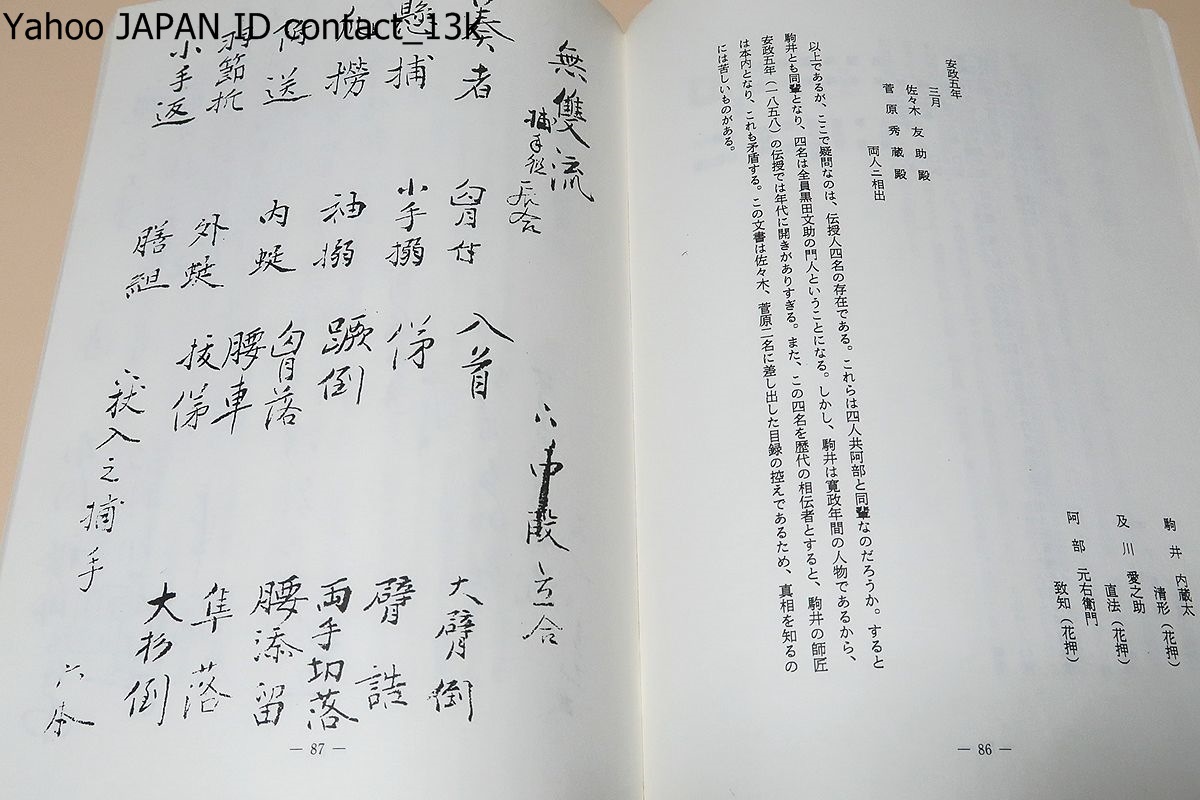 Yahoo JAPAN ID contact_13k
駒井 内蔵太
清形(花押)
及川 愛之助
直法(花押)
阿部 元右衛門
致知(花押)
安政五年
三月
佐々木友助殿
菅原秀蔵殿
両人ニ相出
以上であるが、ここで疑問なのは、伝授人四名の存在である。これらは四人共阿部と同輩なのだろうか。すると
駒井とも同輩となり、四名は全員黒田文助の門人ということになる。しかし、駒井は寛政年間の人物であるから、
安政五年(一八五八)の伝授では年代に開きがありすぎる。また、この四名を歴代の相伝者とすると、駒井の師匠
は本内となり、これも矛盾する。この文書は佐々木、菅原二名に差し出した目録の控えであるため、真相を知るの
には苦しいものがある。
— 86 —
無雙流
捕手
奏者
胸
入首
大臂倒
懸捕
小手搦
臂
撈
袖搦
蹶倒
両手切落
送
内蜓
胸落
腰添留
外蜓
腰車
隼落
小手返
膳組
大杉倒
入之捕手
六本
— 87 —